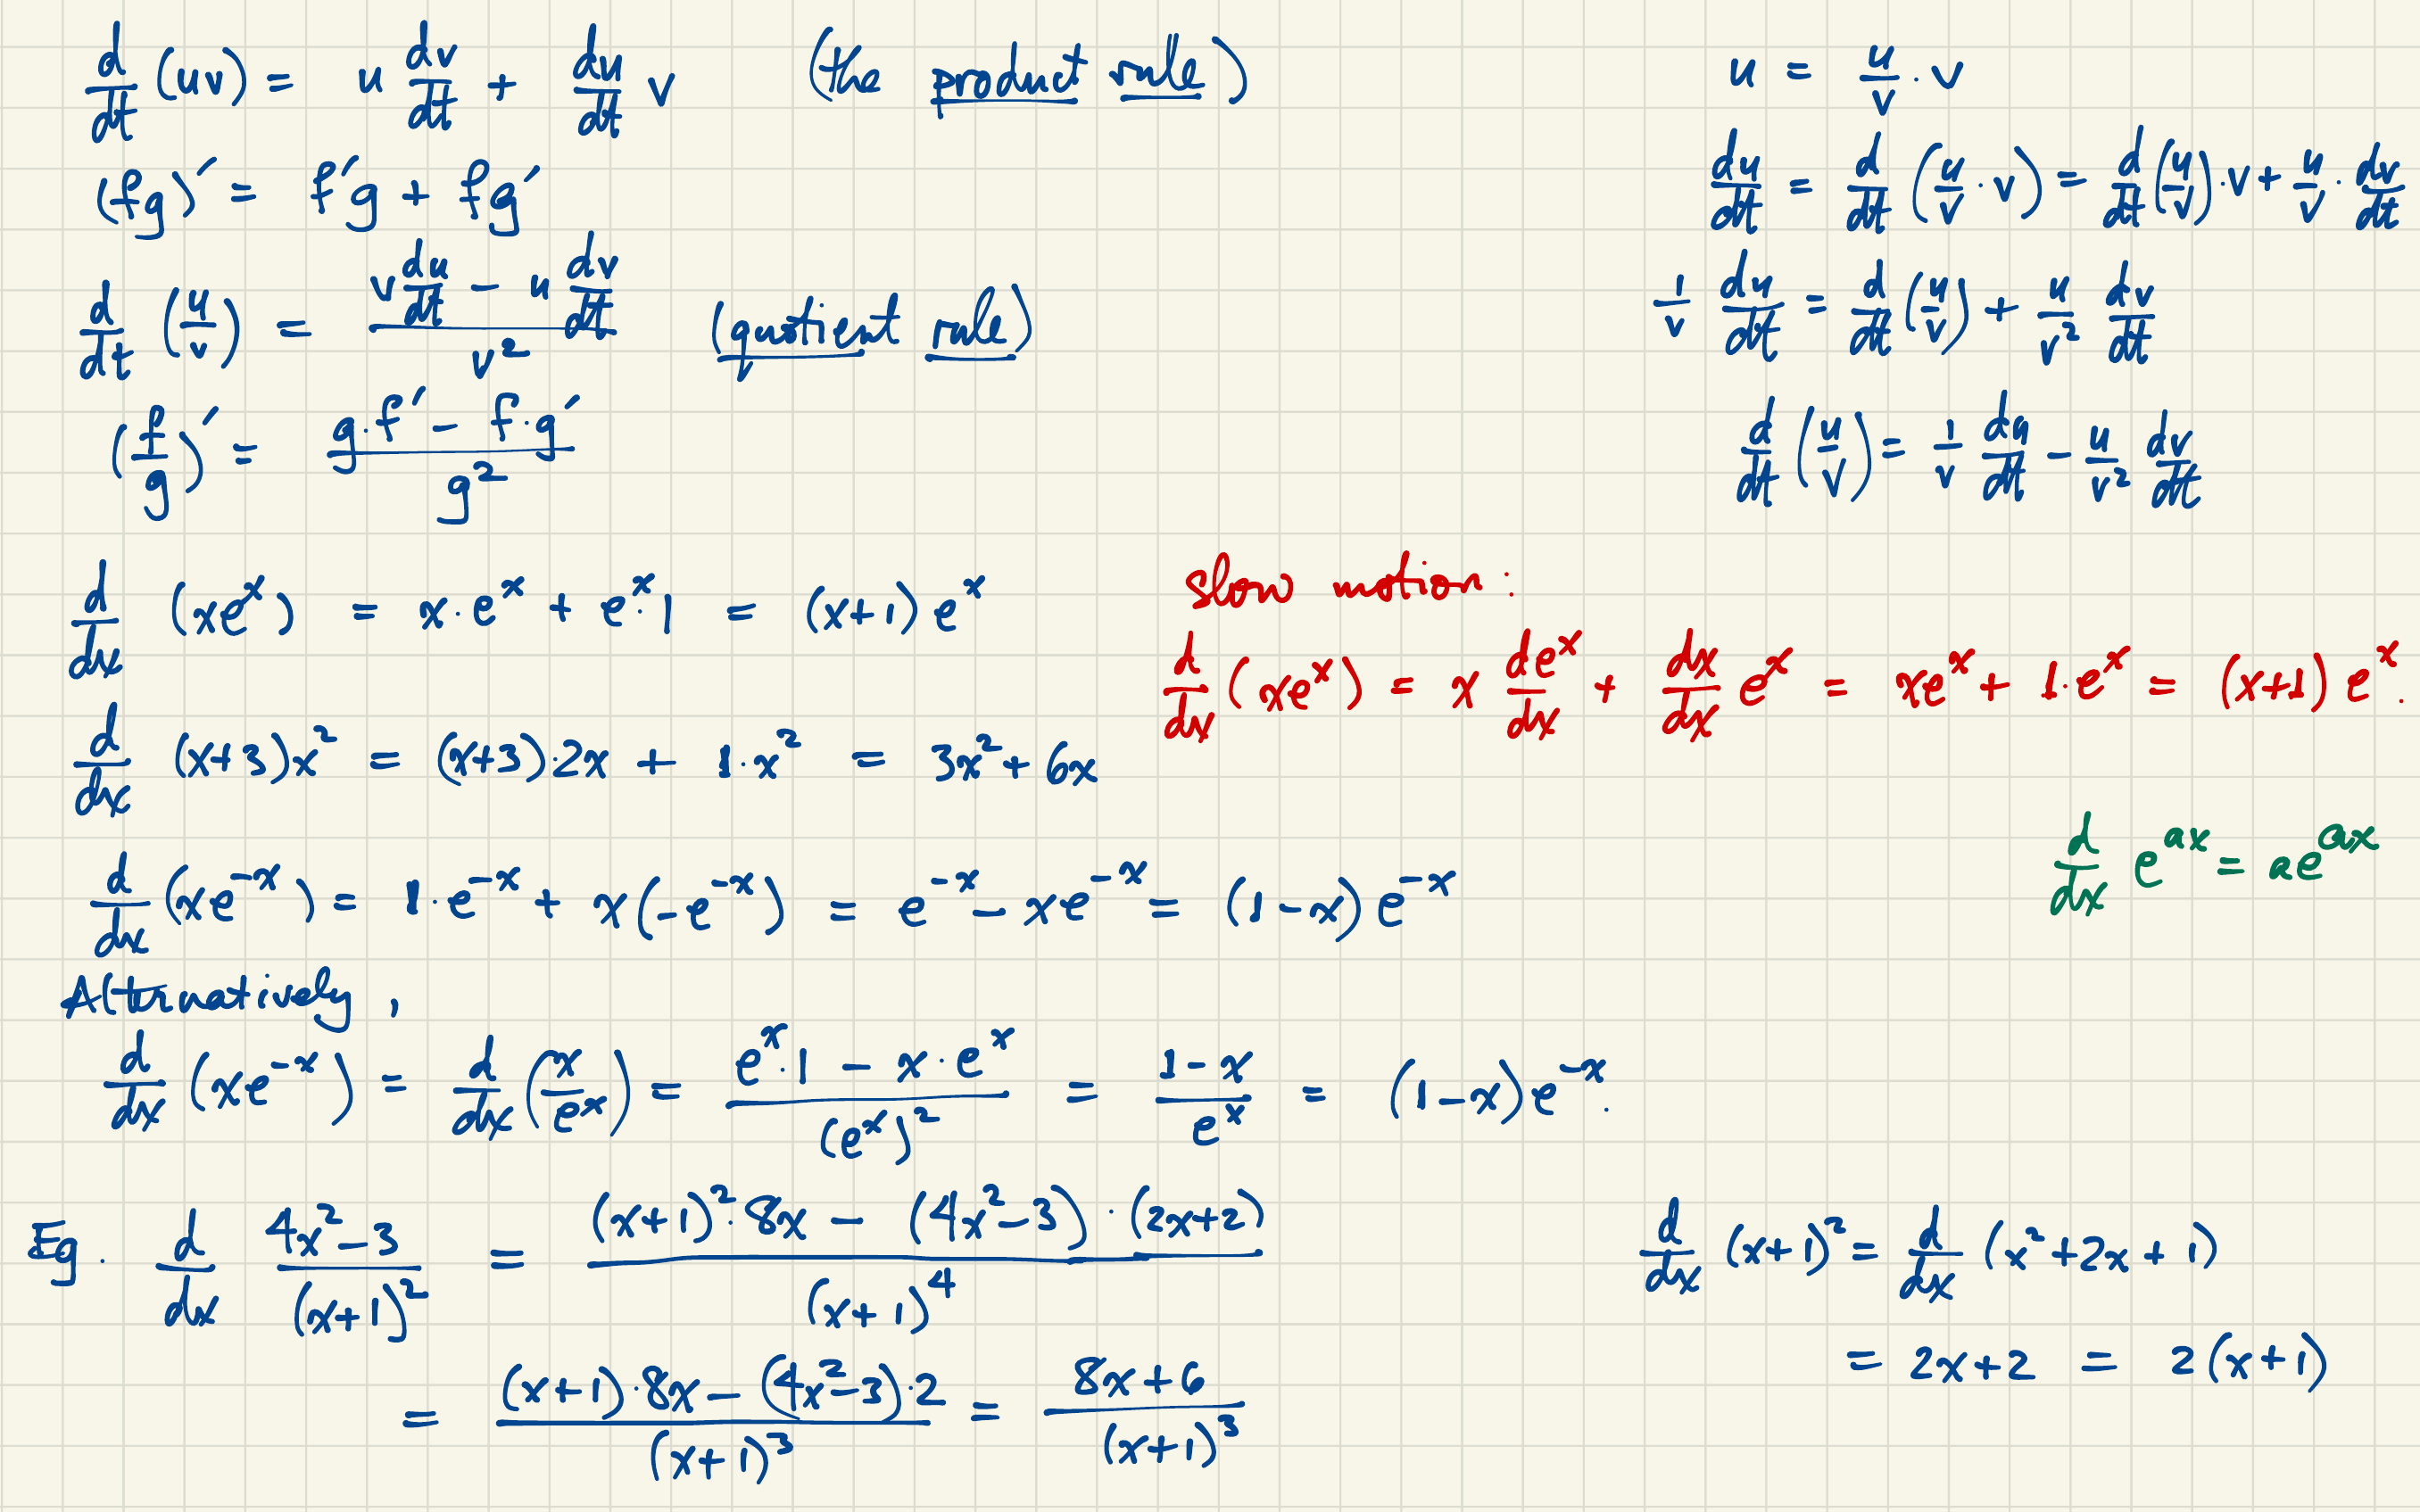 d/dt (uv) = u dv/dt + du/dt v (the product rule)
(fg)′ = f′g + fg′
d/dt (u/v) = (v du/dt − u dv/dt)/v² (quotient rule)
(f/g)′ = (g·f′ − f·g′)/g²
u = u/v · v
du/dt = d/dt (u/v · v) = d/dt (u/v)·v + u/v · dv/dt
1/v du/dt = d/dt (u/v) + u/v² dv/dt
d/dt (u/v) = 1/v du/dt − u/v² dv/dt
d/dx (xeˣ) = x·eˣ + eˣ·1 = (x+1) eˣ
Slow motion :
d/dx (xeˣ) = x deˣ/dx + dx/dx eˣ = xeˣ + 1·eˣ = (x+1) eˣ.
d/dx (x+3)x² = (x+3)·2x + 1·x² = 3x² + 6x
d/dx e^{ax} = ae^{ax}
d/dx (xe⁻ˣ) = 1·e⁻ˣ + x(−e⁻ˣ) = e⁻ˣ − xe⁻ˣ = (1−x) e⁻ˣ
Alternatively,
d/dx (xe⁻ˣ) = d/dx (x/eˣ) = (eˣ·1 − x·eˣ)/(eˣ)² = (1−x)/eˣ = (1−x)e⁻ˣ.
Eg. d/dx (4x²−3)/(x+1)² = ((x+1)²·8x − (4x²−3)·(2x+2))/(x+1)⁴
= ((x+1)·8x − (4x²−3)·2)/(x+1)³ = (8x+6)/(x+1)³
d/dx (x+1)² = d/dx (x²+2x+1)
= 2x+2 = 2(x+1)